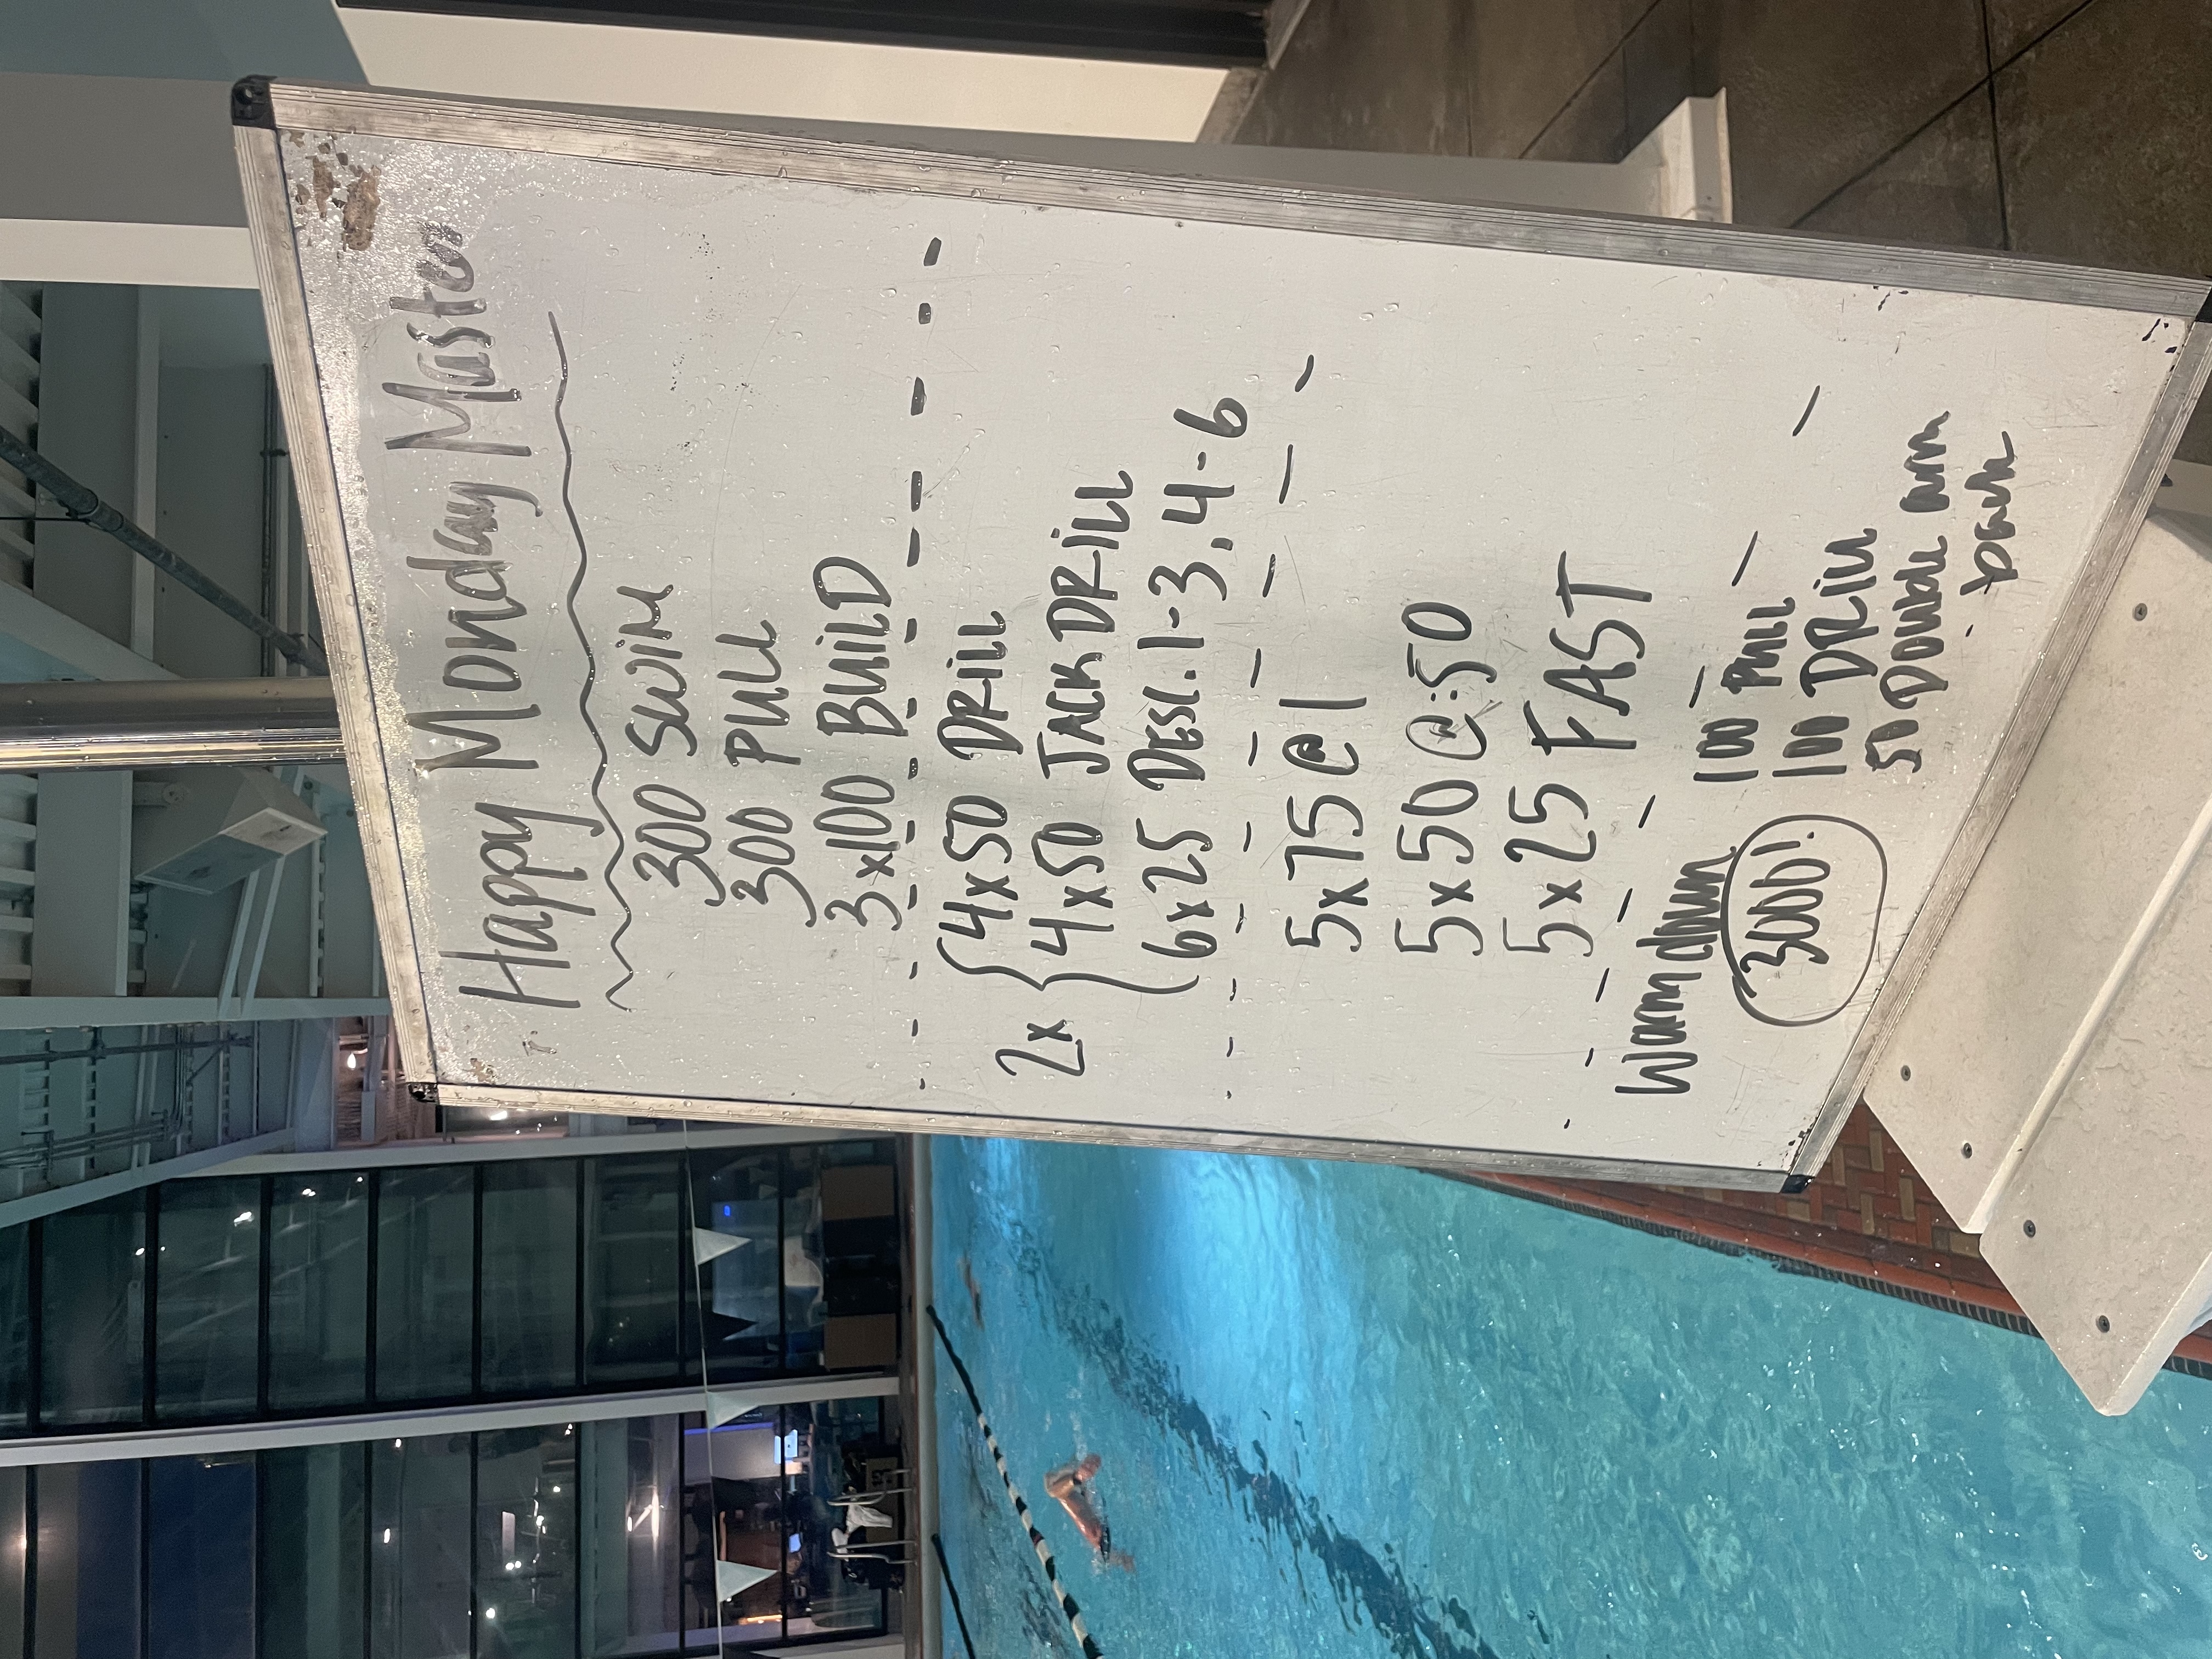 Happy Monday Masters
300 SWIM
300 PULL
3x100 BUILD
2x { 4x50 DRILL
4x50 JACK DRILL
6x25 DESC. 1-3, 4-6
5x75 @ 1
5x50 @ :50
5x25 FAST
Warmdown
100 PULL
100 DRILL
50 Double arm
back
3000!